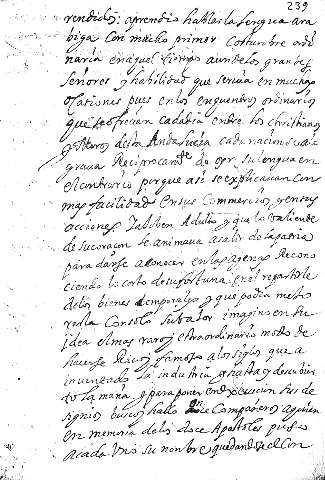 239
rendidos: aprendio hablar la lengua ara
biga con mucho primor costumbre ordi
naria en aquel tiempo aun de los grandes
señores y habilidad que servia en muchas
ocasiones pues en los enquentros ordinarios
que se ofrecian cada dia entre los christianos
y Moros desta Andaluzia cada nacion
grava reciprocamte de oyr su lengua en
el contrario porque asi se explicavan con
mas facilidad en sus comercios y en sus
acciones y que lo valiente
de su coraçon le animava a salir de la patria
para darse a conocer en las agenas recono
ciendo lo corto de su fortuna en el
de los bienes temporales y que podia
su valor imagino en su
idea el mas raro y extraordinario modo de
hacerse Rico y famoso a los siglos que a
inventado la industria y hasta descubier
to la maña, y para poner en execucion sus de
signios busco y hallo doce compañeros a quien
en memoria de los doce Apostoles puso
a cada uno su nombre quedandose el con